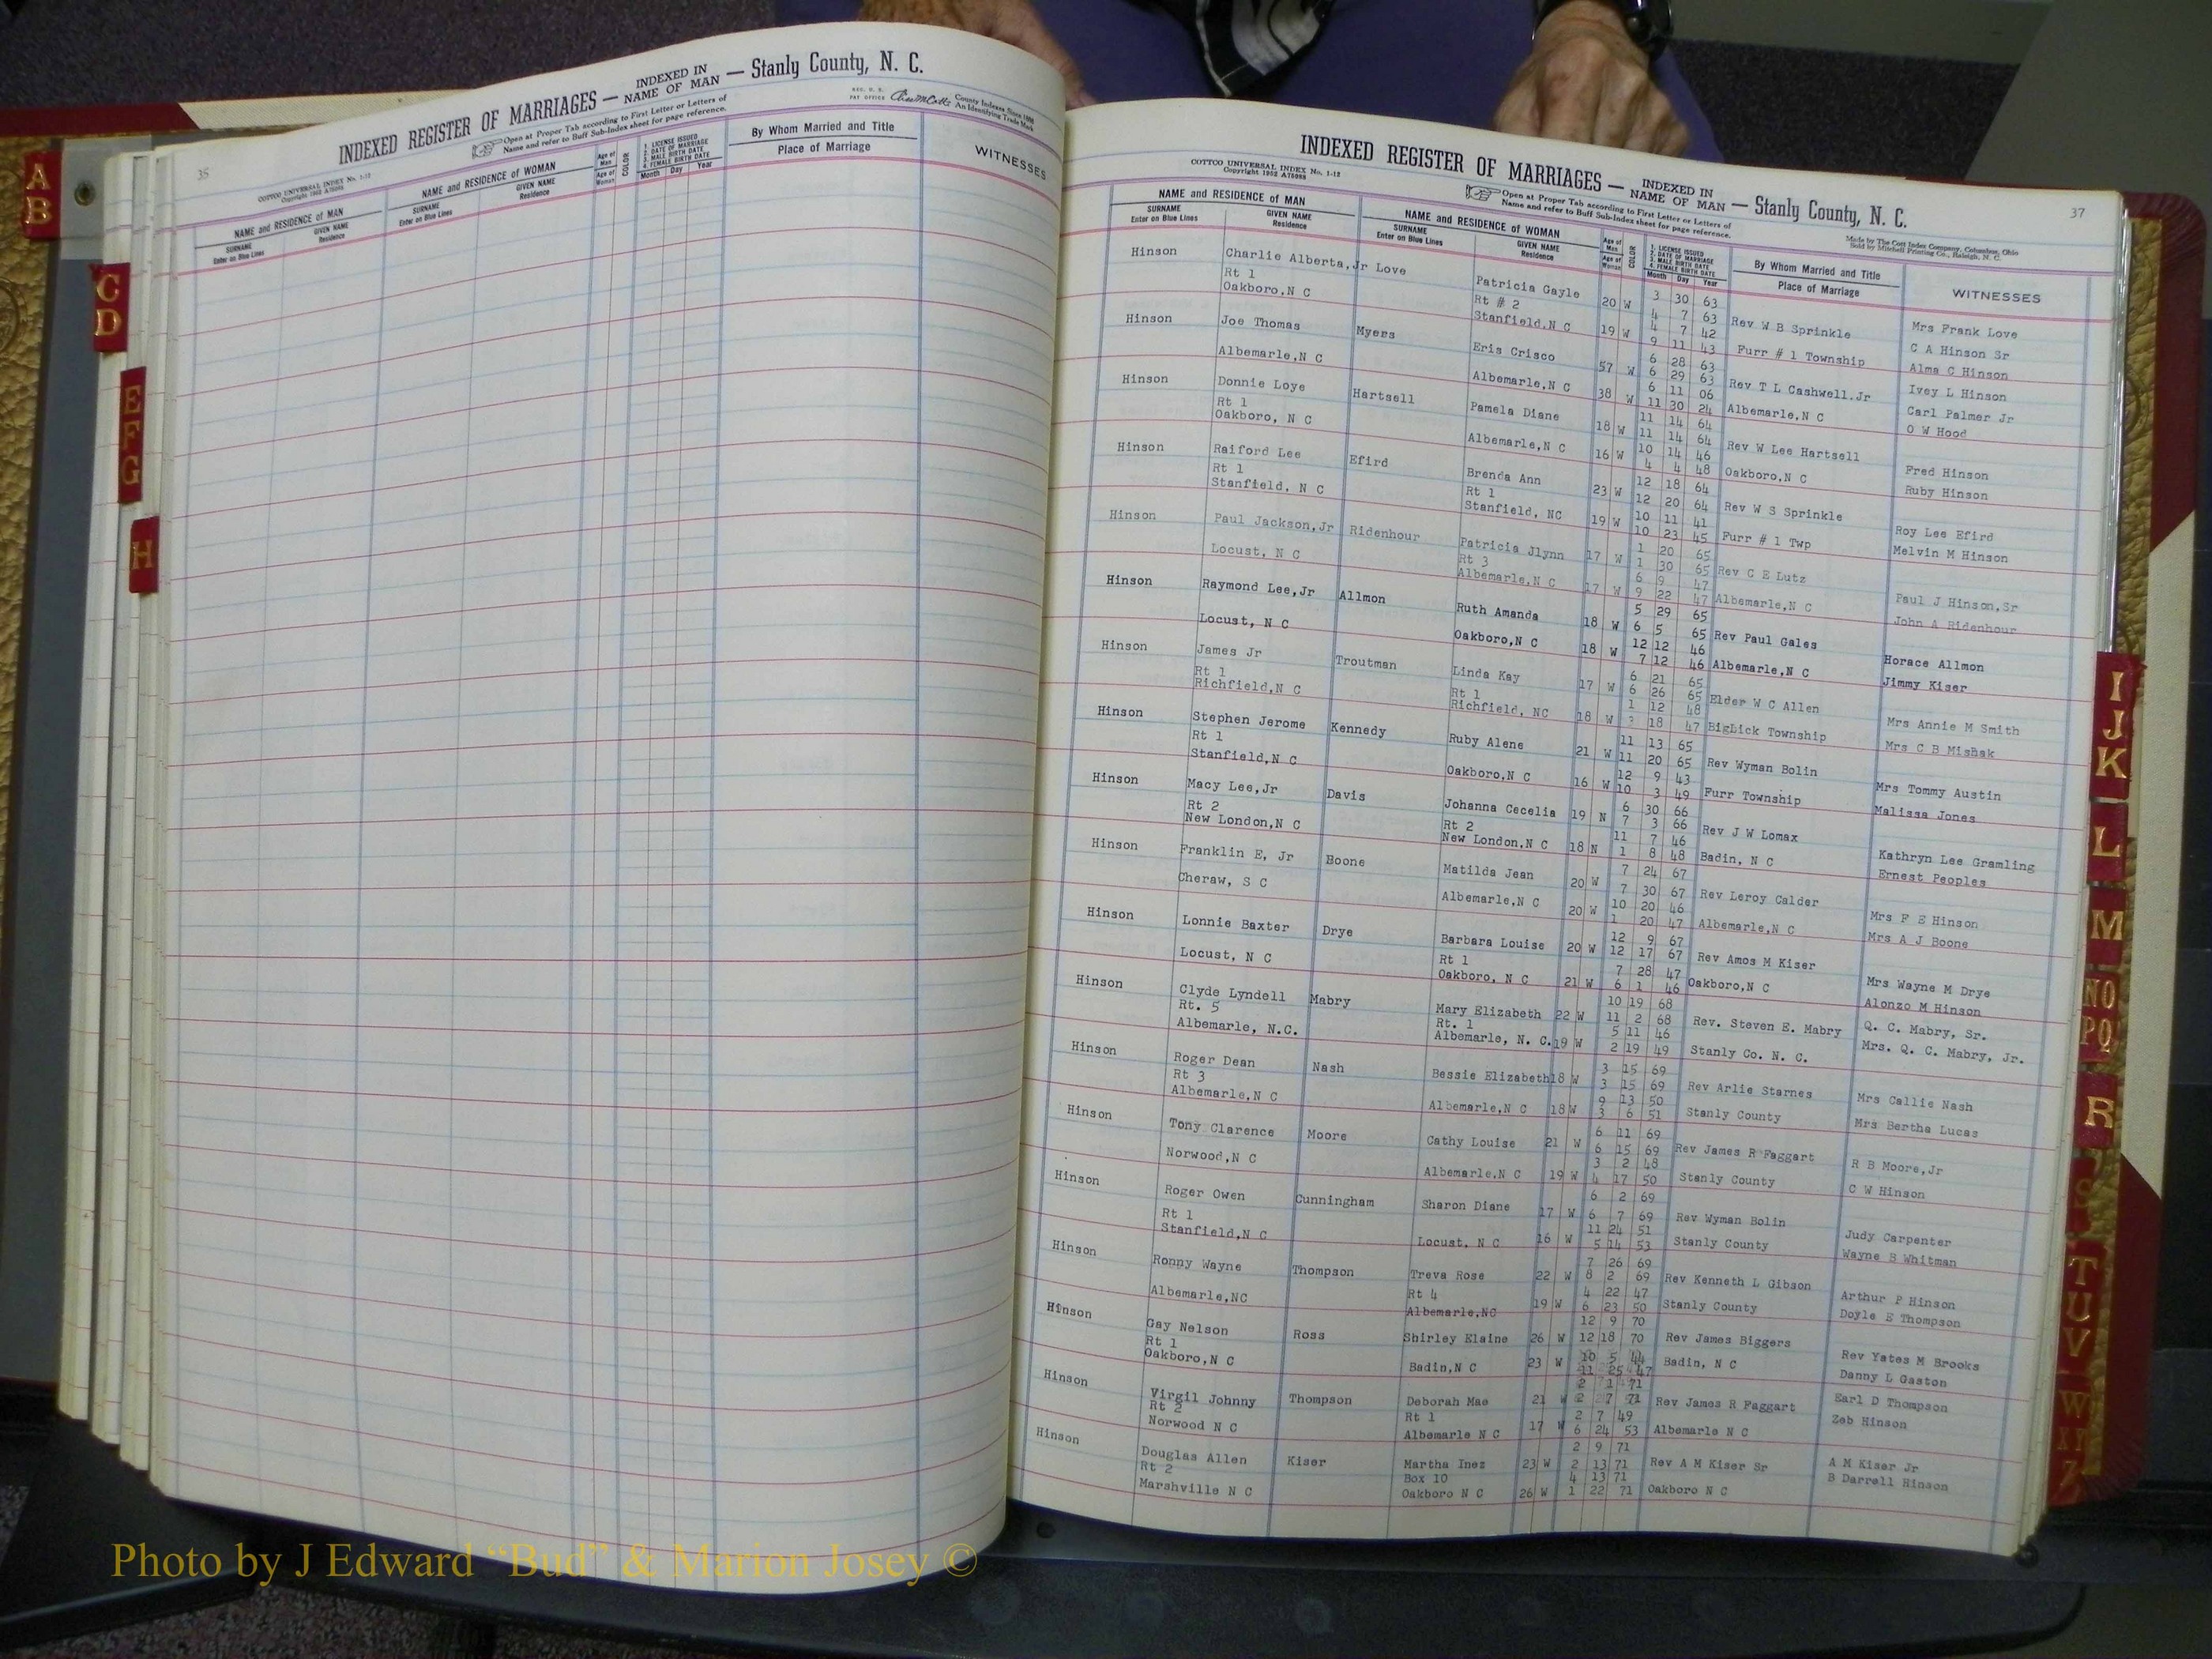 35
INDEXED REGISTER OF MARRIAGES — INDEXED IN NAME OF MAN — Stanly County, N. C.
COTTCO UNIVERSAL INDEX No. 1-12
Copyright 1952 A75098
Open at Proper Tab according to First Letter or Letters of
Name and refer to Buff Sub-Index sheet for page reference.
REG. U. S. PAT OFFICE
County Indexes Since 1888
An Identifying Trade Mark
NAME and RESIDENCE of MAN
SURNAME
Enter on Blue Lines
GIVEN NAME
Residence
NAME and RESIDENCE of WOMAN
SURNAME
Enter on Blue Lines
GIVEN NAME
Residence
Age of Man
Age of Woman
COLOR
1. LICENSE ISSUED
2. DATE OF MARRIAGE
3. MALE BIRTH DATE
4. FEMALE BIRTH DATE
Month Day Year
By Whom Married and Title
Place of Marriage
WITNESSES
37
INDEXED REGISTER OF MARRIAGES — INDEXED IN NAME OF MAN — Stanly County, N. C.
COTTCO UNIVERSAL INDEX No. 1-12
Copyright 1952 A75098
Open at Proper Tab according to First Letter or Letters of
Name and refer to Buff Sub-Index sheet for page reference.
Made by The Cott Index Company, Columbus, Ohio
Sold by Mitchell Printing Co., Raleigh, N. C.
NAME and RESIDENCE of MAN
SURNAME
Enter on Blue Lines
GIVEN NAME
Residence
NAME and RESIDENCE of WOMAN
SURNAME
Enter on Blue Lines
GIVEN NAME
Residence
Age of Man
Age of Woman
COLOR
1. LICENSE ISSUED
2. DATE OF MARRIAGE
3. MALE BIRTH DATE
4. FEMALE BIRTH DATE
Month Day Year
By Whom Married and Title
Place of Marriage
WITNESSES
Hinson Charlie Alberta,Jr Love Patricia Gayle 20 W 3 30 63 Rev W B Sprinkle Mrs Frank Love
Rt 1 Rt # 2 4 7 63 C A Hinson Sr
Oakboro,N C Stanfield,N C 19 W 4 7 42 Furr # 1 Township Alma C Hinson
9 11 43
Hinson Joe Thomas Myers Eris Crisco 57 W 6 28 63 Rev T L Cashwell,Jr Ivey L Hinson
6 29 63 Carl Palmer Jr
Albemarle,N C Albemarle,N C 38 W 6 11 06 Albemarle,N C O W Hood
11 30 24
Hinson Donnie Loye Hartsell Pamela Diane 18 W 11 14 64 Rev W Lee Hartsell Fred Hinson
Rt 1 11 14 64
Oakboro, N C Albemarle,N C 16 W 10 14 46 Oakboro,N C Ruby Hinson
4 4 48
Hinson Raiford Lee Efird Brenda Ann 23 W 12 18 64 Rev W S Sprinkle Roy Lee Efird
Rt 1 Rt 1 12 20 64
Stanfield, N C Stanfield, NC 19 W 10 11 41 Furr # 1 Twp Melvin M Hinson
10 23 45
Hinson Paul Jackson,Jr Ridenhour Patricia Jlynn 17 W 1 20 65 Rev C E Lutz Paul J Hinson,Sr
Rt 3 1 30 65
Locust, N C Albemarle,N C 17 W 6 9 47 Albemarle,N C John A Ridenhour
9 22 47
Hinson Raymond Lee,Jr Allmon Ruth Amanda 18 W 5 29 65 Rev Paul Gales Horace Allmon
6 5 65
Locust, N C Oakboro,N C 18 W 12 12 46 Albemarle,N C Jimmy Kiser
7 12 46
Hinson James Jr Troutman Linda Kay 17 W 6 21 65 Elder W C Allen Mrs Annie M Smith
Rt 1 Rt 1 6 26 65
Richfield,N C Richfield, NC 18 W 1 12 48 BigLick Township Mrs C B Mishak
18 47
Hinson Stephen Jerome Kennedy Ruby Alene 21 W 11 13 65 Rev Wyman Bolin Mrs Tommy Austin
Rt 1 11 20 65
Stanfield,N C Oakboro,N C 16 W 12 9 43 Furr Township Malissa Jones
10 3 49
Hinson Macy Lee,Jr Davis Johanna Cecelia 19 N 6 30 66 Rev J W Lomax Kathryn Lee Gramling
Rt 2 Rt 2 7 3 66
New London,N C New London,N C 18 N 11 7 46 Badin, N C Ernest Peoples
1 8 48
Hinson Franklin E, Jr Boone Matilda Jean 20 W 7 24 67 Rev Leroy Calder Mrs F E Hinson
7 30 67
Cheraw, S C Albemarle,N C 20 W 10 20 46 Albemarle,N C Mrs A J Boone
1 20 47
Hinson Lonnie Baxter Drye Barbara Louise 20 W 12 9 67 Rev Amos M Kiser Mrs Wayne M Drye
Rt 1 12 17 67
Locust, N C Oakboro, N C 21 W 7 28 47 Oakboro,N C Alonzo M Hinson
6 1 46
Hinson Clyde Lyndell Mabry Mary Elizabeth 22 W 10 19 68 Rev. Steven E. Mabry Q. C. Mabry, Sr.
Rt. 5 Rt. 1 11 2 68
Albemarle, N.C. Albemarle, N. C. 19 W 5 11 46 Stanly Co. N. C. Mrs. Q. C. Mabry, Jr.
2 19 49
Hinson Roger Dean Nash Bessie Elizabeth 18 W 3 15 69 Rev Arlie Starnes Mrs Callie Nash
Rt 3 3 15 69
Albemarle,N C Albemarle,N C 18 W 9 13 50 Stanly County Mrs Bertha Lucas
3 6 51
Hinson Tony Clarence Moore Cathy Louise 21 W 6 11 69 Rev James R Faggart R B Moore,Jr
6 15 69
Norwood,N C Albemarle,N C 19 W 3 2 48 Stanly County C W Hinson
4 17 50
Hinson Roger Owen Cunningham Sharon Diane 17 W 6 2 69 Rev Wyman Bolin Judy Carpenter
Rt 1 6 7 69
Stanfield,N C Locust, N C 16 W 11 24 51 Stanly County Wayne B Whitman
5 14 53
Hinson Ronny Wayne Thompson Treva Rose 22 W 7 26 69 Rev Kenneth L Gibson Arthur P Hinson
Rt 4 8 2 69
Albemarle,NC Albemarle,NC 19 W 4 22 47 Stanly County Doyle E Thompson
6 23 50
Hinson Gay Nelson Ross Shirley Elaine 26 W 12 9 70 Rev James Biggers Rev Yates M Brooks
Rt 1 12 18 70
Oakboro,N C Badin,N C 23 W 10 5 44 Badin, N C Danny L Gaston
11 25 47
Hinson Virgil Johnny Thompson Deborah Mae 21 W 2 1 71 Rev James R Faggart Earl D Thompson
Rt 2 Rt 1 2 7 71 Zeb Hinson
Norwood N C Albemarle N C 17 W 2 7 49 Albemarle N C
6 24 53
Hinson Douglas Allen Kiser Martha Inez 23 W 2 9 71 Rev A M Kiser Sr A M Kiser Jr
Rt 2 Box 10 2 13 71 B Darrell Hinson
Marshville N C Oakboro N C 26 W 4 13 71 Oakboro N C
1 22 71
A
B
C
D
E
F
G
H
I
J
K
L
M
NO
PQ
R
S
T
U
V
W
X Y
Z
Photo by J Edward “Bud” & Marion Josey ©